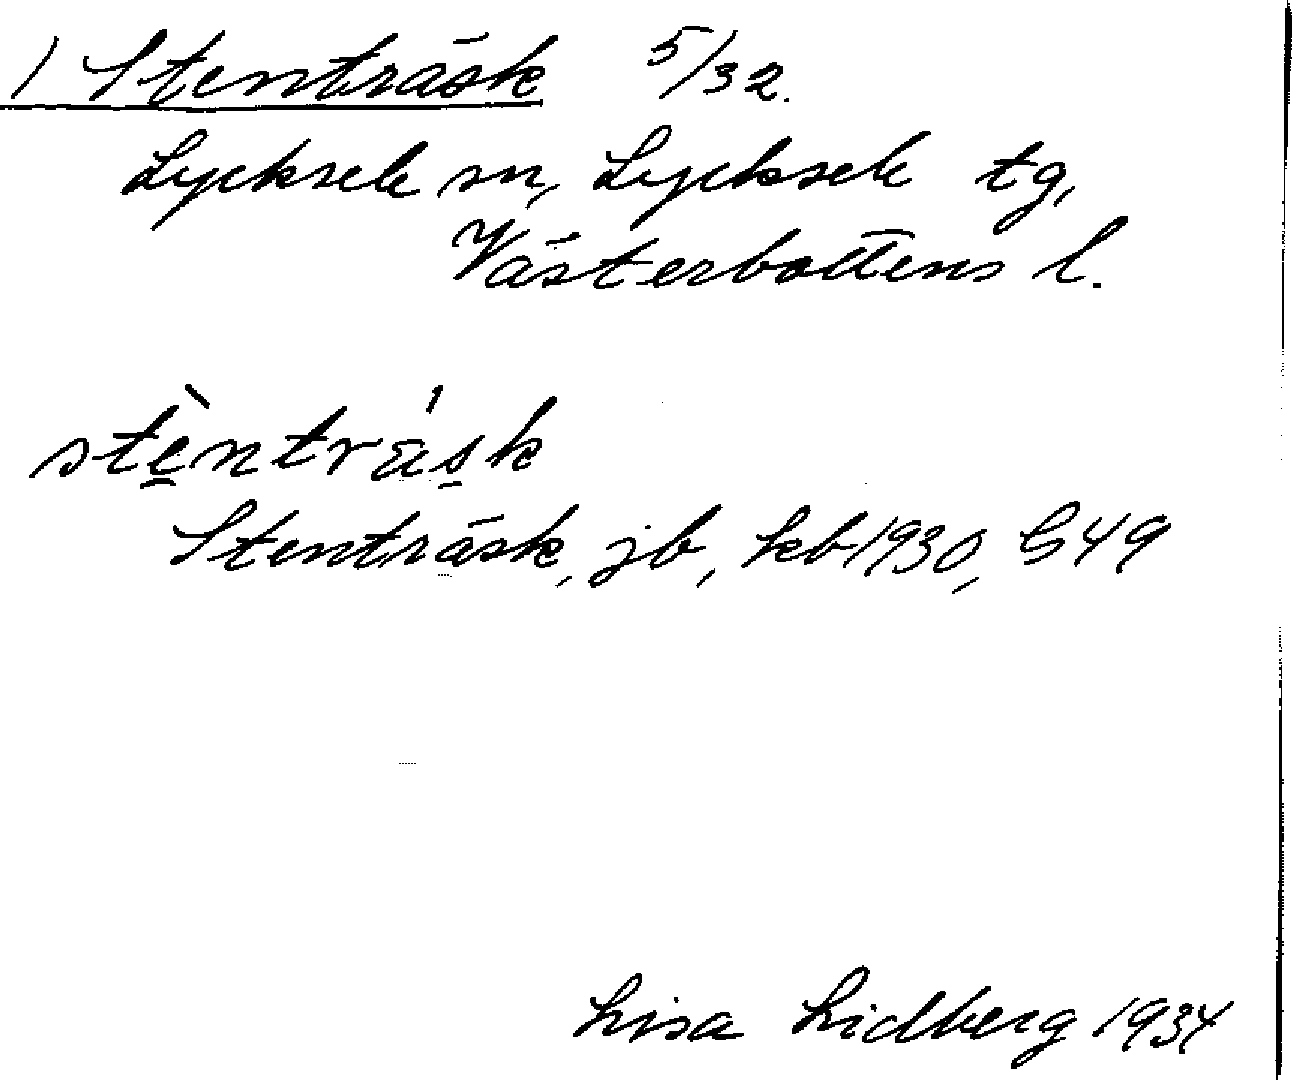 1 Stenträsk 5/32.
Lycksele sn, Lycksele tg,
Västerbottens l.
stèntrásk
Stenträsk, jb, kb 1930, G49
Lisa Lidberg 1934